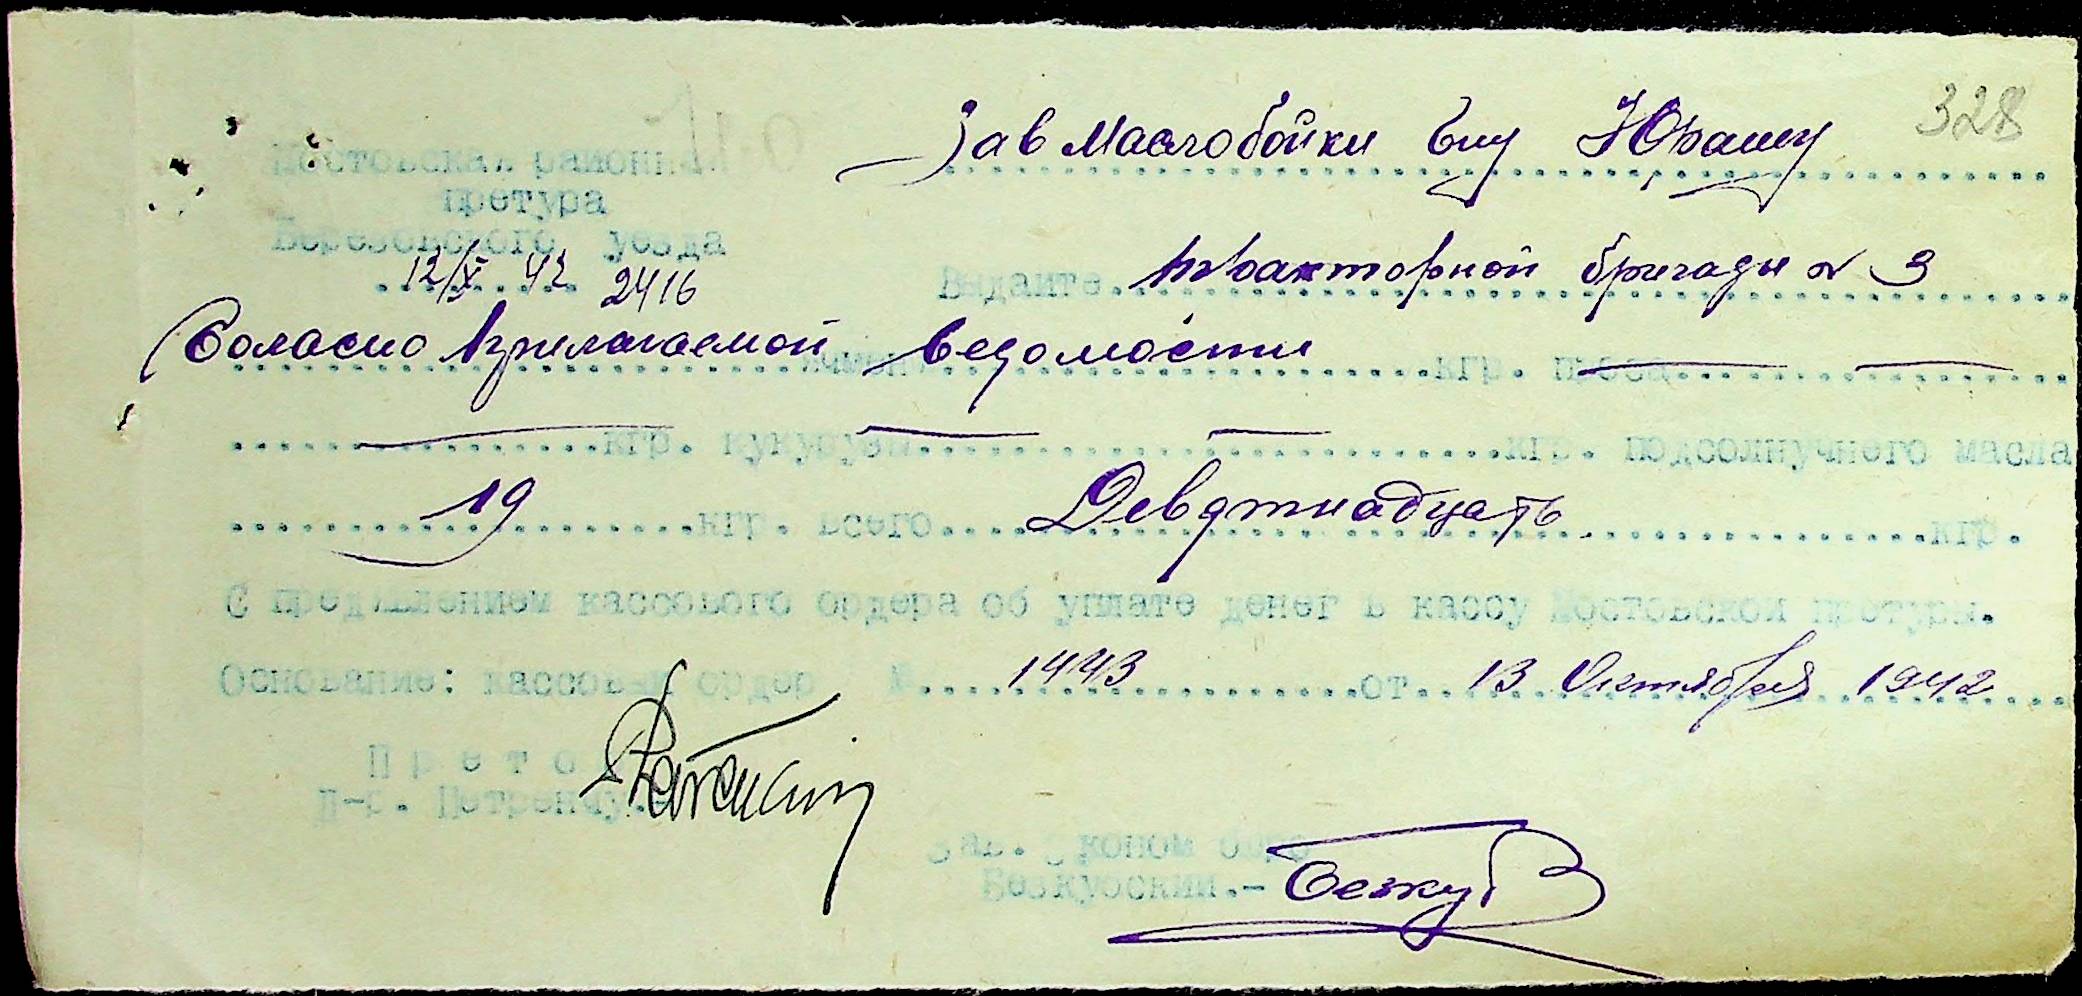 328
Зав Маслобойки Гну Юрашу
Мостовская районная
претура
Березовского уезда
12/X 42 2416
Выдайте тракторной бригады № 3
Согласно прилагаемой ведомости ячменя кгр. проса
кгр. кукурузы кгр. подсолнучного масла
19 кгр. всего Девятнадцать кгр.
С предъявлением кассового ордера об уплате денег в кассу Мостовской претуры.
Основание: кассовый ордер № 1443 от 13 Октября 1942
Претор
П-р.
Зав. Эконом бюро
Безкубский.- Безкуб